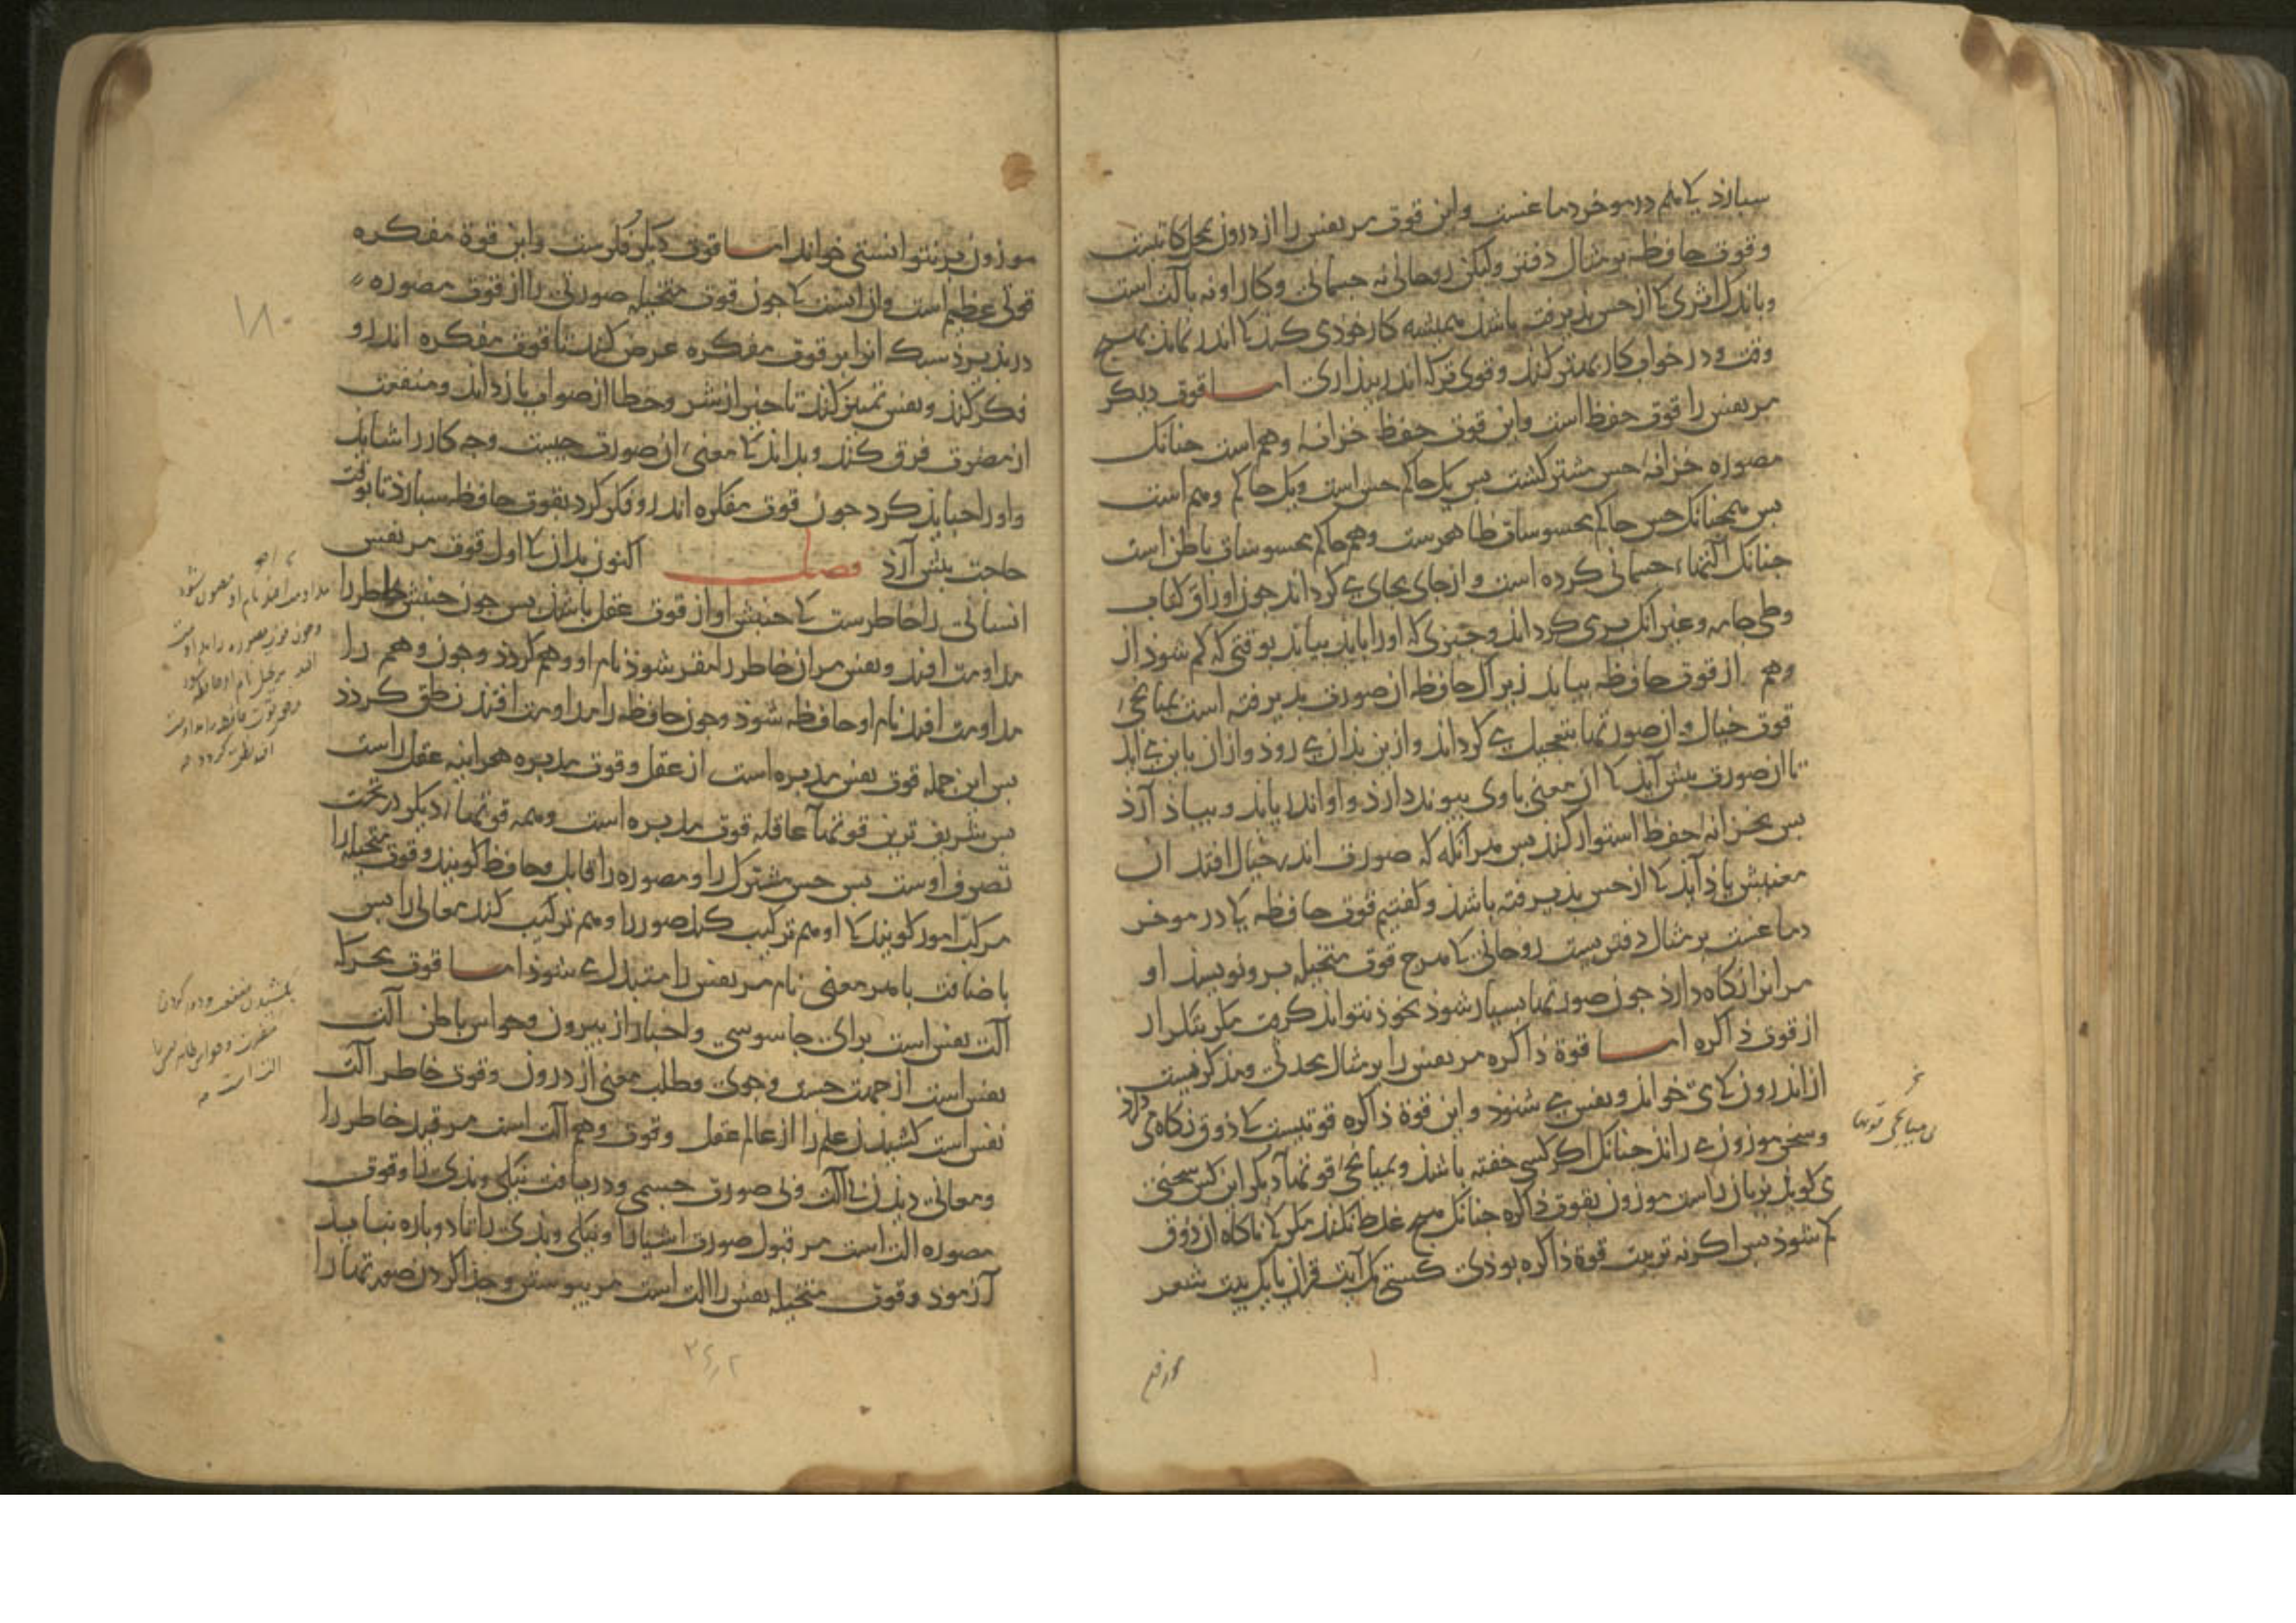 سبارد کا هم در موخر دماغست واین قوة مر نفس را از درون بمحل کاتبست
وقوة حافظه بر مثال دفتر ولیکن روحانی نه جسمانی وکار او نه بآلت است
وباندک اثری کا از حس بذیرفته باشد همیشه کار خودی کند کا اندر نماند بهیچ
وقت و در خواب کار بهتر کند وقوی تر که اندر بیداری اما قوة دیکر
مر نفس را قوة حفظ است واین قوة حفظ خزانهٔ وهم است جنانک
مصوره خزانهٔ حس مشترک کشت بس یک حاکم حس است ویک حاکم وهم است
بس همجنانک حس حاکم محسوسات ظاهرست وهم حاکم محسوسات باطن است
جنانک آلتهاء جسمانی کرده است واز جای بجای می کرداند جون اوراق کتاب
وطی جامه وغیر آنک بری کرداند وجیزی که اورا باید بیابد بوقتی که کم شود از
وهم از قوة حافظه بیابد زیراک حافظه آن صورت بذیرفته است بمیانجی
قوة خیال واز صورتها بتعجیل می کرداند واز بن بدان می رود واز آن باین می آید
تا آن صورت بیش آید کا آن معنی باوی بیوند دارد واو اندر یابد وبیاد آرد
بس بخزانهٔ حفظ استوار کند بس هر آنکه که صورت اندر خیال افتد آن
معنیش باز آید کا از حس بذیرفته باشد وکفتیم قوة حافظه کا در موخر
دماغست بر مثال دفتریست روحانی کا هرج قوة متخیله برو نویسد او
مر آنرا نکاه دارد جون صورتها بسیار شود بخود نتواند کرفت مکر بتکرار
از قوة ذاکره اما قوة ذاکره مر نفس را بر مثال محدثی ومذکریست
از اندرون کا می خواند ونفس می شنود واین قوة ذاکره قوتیست کا ذوق نکاه می دارد
وسخن موزون می راند جنانک اکر کسی خفته باشد وبمیانجی قوتهاء دیکر این کس سخنی
می کوید بزبان راست موزون بقوة ذاکره جنانک هیج غلط نکند مکر کا ناکاه آن ذوق
کم شود بس اکر نه تربیت قوة ذاکره بودی کسی یک آیت قرآن یا یک بیت شعر
بی میانجی قوتها
موزون بر نتوانستی خواند اما قوة دیکر فکرست واین قوة مفکره
قوتی عظیم است وآن است کا جون قوة متخیله صورتی را از قوة مصوره
در بذیرد سبک آنرا بر قوة مفکره عرض کند تا قوة مفکره اندرو
فکر کند ونفس تمییز کند تا خیر از شر وخطا از صواب باز داند ومنفعت
از مضرت فرق کند وبداند کا معنی آن صورت جیست وجه کار را شاید
واورا جباید کرد جون قوة مفکره اندرو فکر کرد بقوة حافظه سبارد تا بوقت
حاجت بیش آرد فصل اکنون بدان کا اول قوة مر نفس
انسانی را خاطرست کا جنبش او از قوة عقل باشد بس جون جنبش خاطر را
مداومت افتد ونفس مر آن خاطر را مقر شود نام او وهم کردد وجون وهم را
مداومت افتد نام او حافظه شود وجون حافظه را مداومت افتد نطق کردد
بس این جمله قوة نفس مدبره است از عقل وقوة مدبره هر آینه عقل راست
بس شریف ترین قوتها عاقله قوة مدبره است وهمه قوتهاء دیکر در تحت
تصرف اوست بس حس مشترک را ومصوره را قابل وحافظ کویند وقوة متخیله را
مرکب امور کویند کا او هم ترکیب کند صور را وهم ترکیب کند معانی را بس
باضافت با هر معنی نام مر نفس را متبدل می شود اما قوة محرکه
آلت نفس است برای جاسوسی واخبار از بیرون وحواس باطن آلت
نفس است از جهت جست وجوی وطلب معنی از درون وقوة خاطر آلت
نفس است کشیدن علم را از عالم عقل وقوة وهم آلت است مر قید خاطر را
ومعانی دیدن بی آلت وبی صورت جسمی ودریافت نیکی وبدی را وقوة
مصوره آلت است مر قبول صورت اشیا را ونیکی وبدی را تا دوباره نباید
آزمود وقوة متخیله نفس را آلت است مر بیوستن وجدا کردن صورتها را
۱۸۰